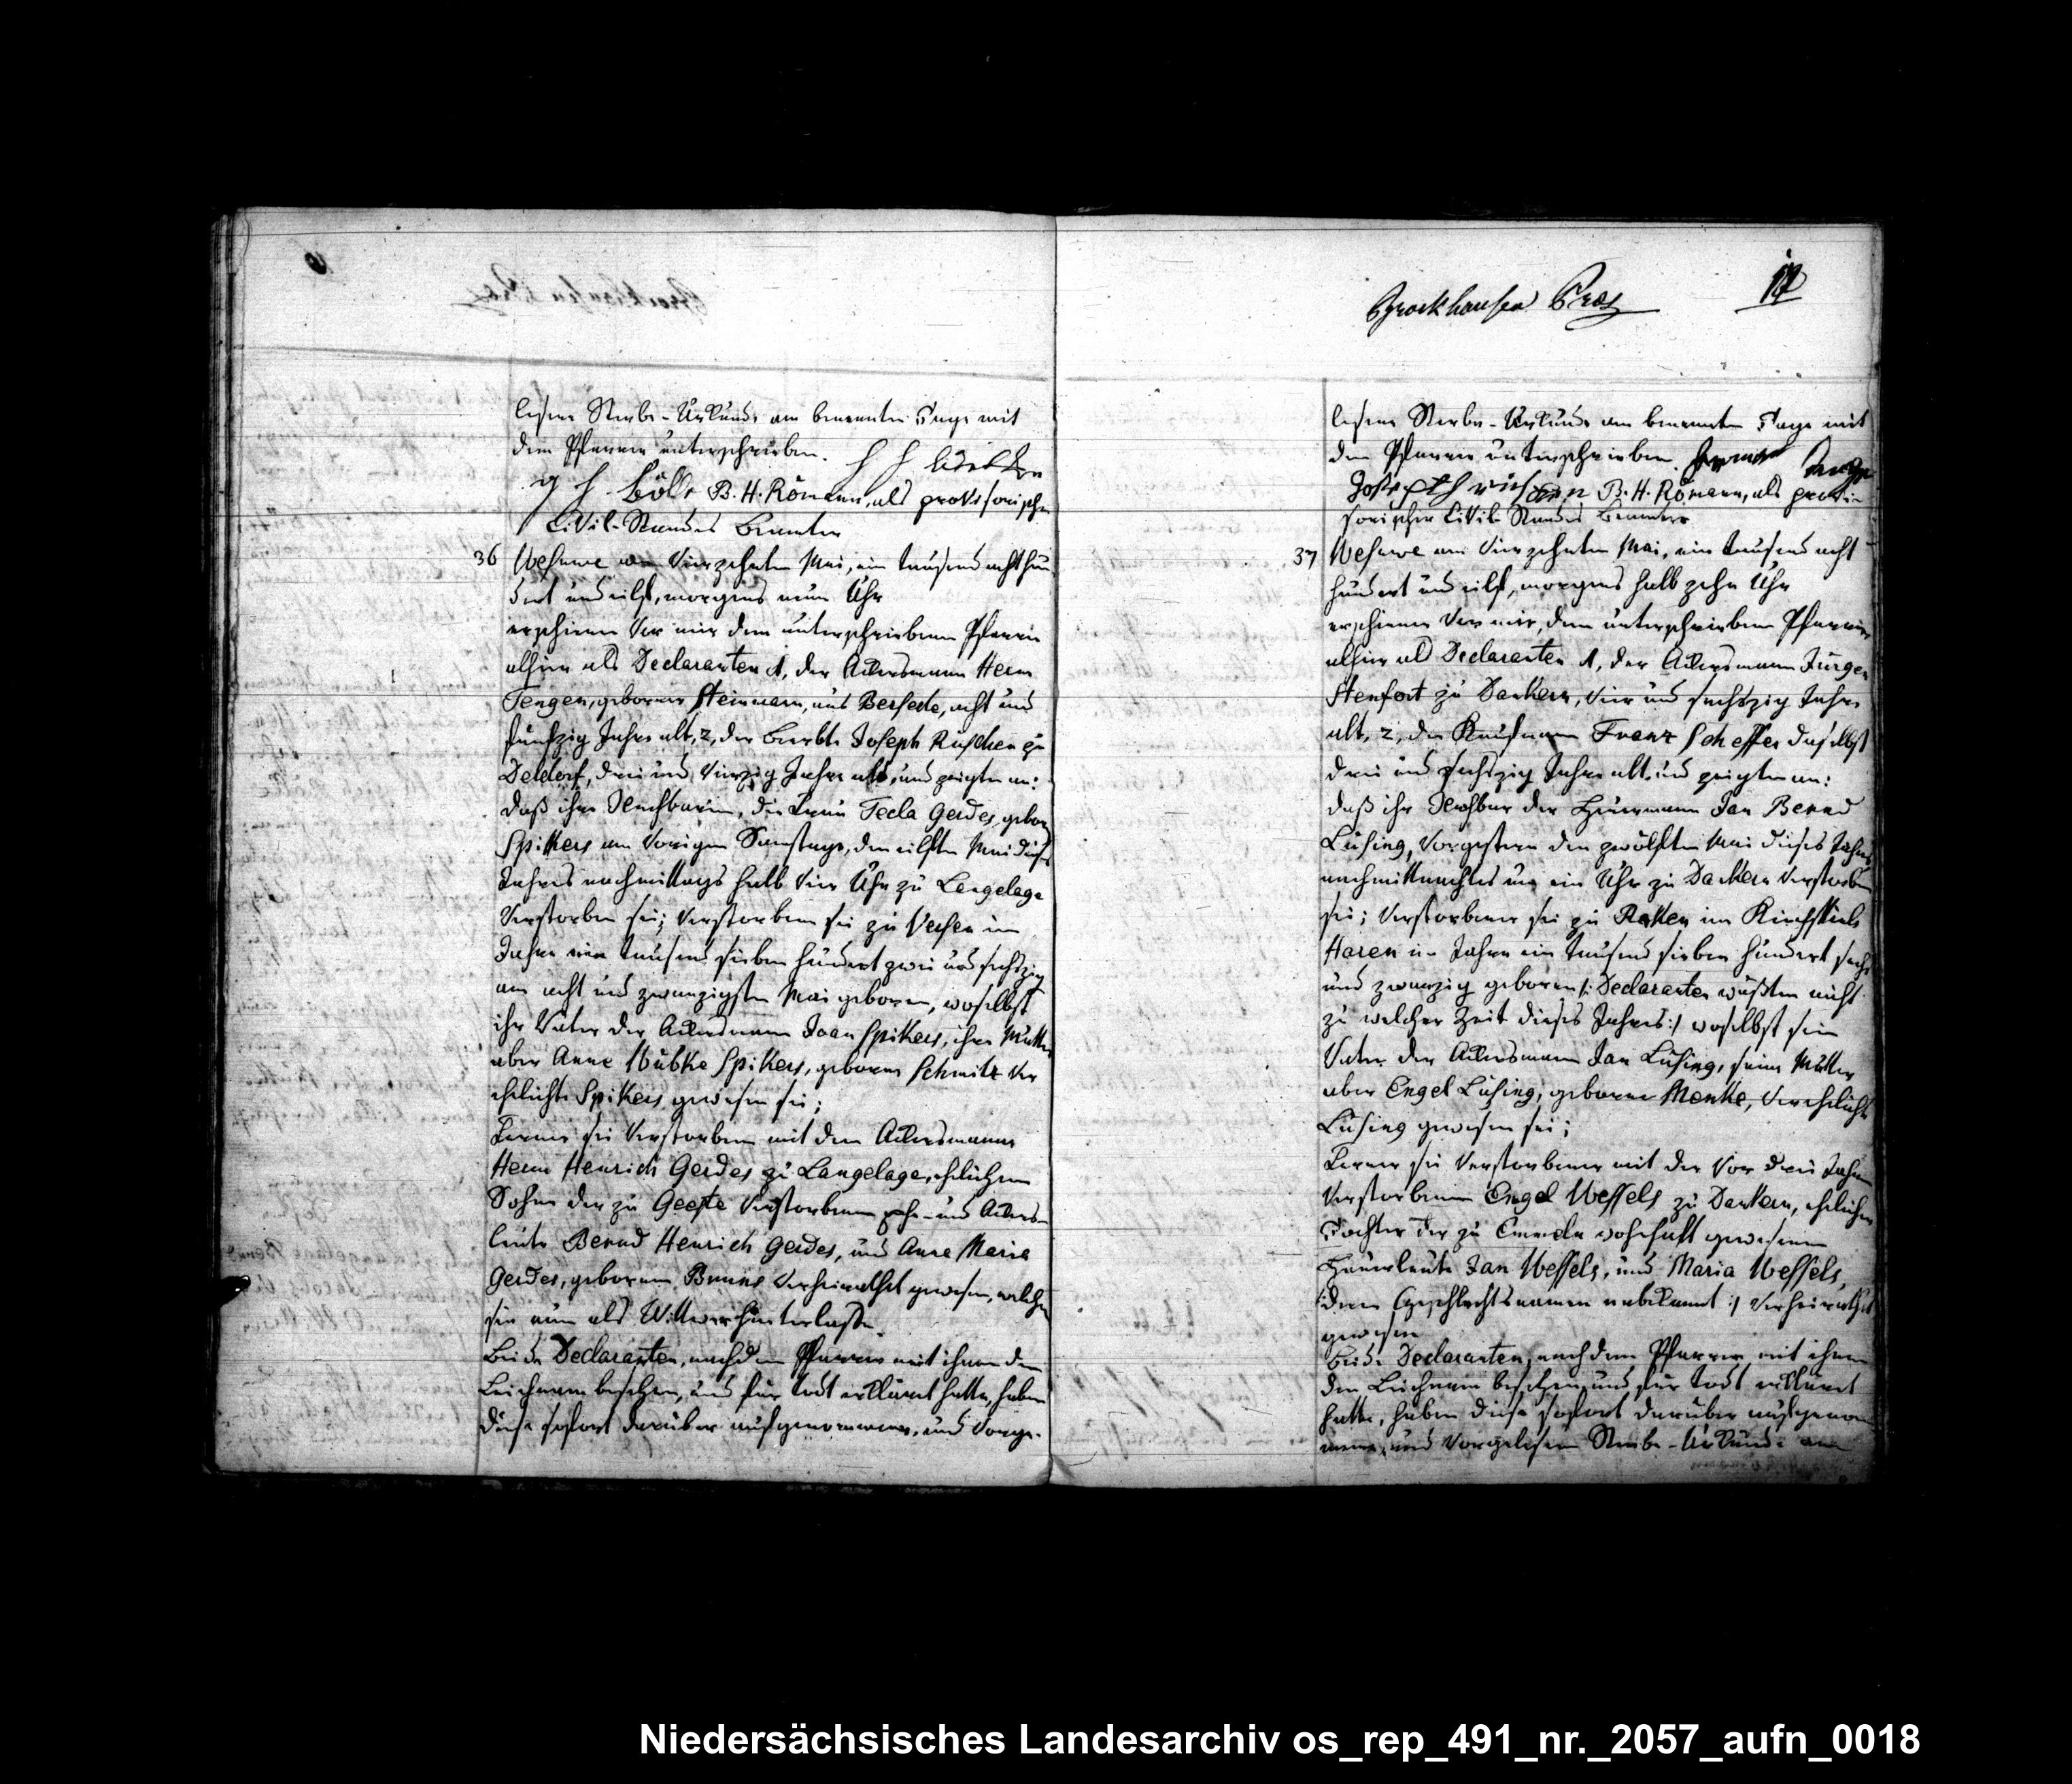 lesene Sterbe-Urkunde am benennten Tage mit
dem Pfarrer unterschrieben.
B. H. Römann, als provisorischer
Civil-Standes Beamter
36 Wesuwe am Vierzehnten Mai, ein tausend acht hun
dert und eilf, morgens neun Uhr
erschienen vor mir dem unterschriebenen Pfarrer
alhier als Declaranten 1, der Ackersmann Herm
Tengen, geborner Steinmann, aus Bersede, acht und
fünfzig Jahre alt, 2, der Beerbte Joseph Ruschen zu
Deldorf, drei und vierzig Jahre alt, und zeigten an:
daß ihre Nachbarin, die Frau Tecla Gerdes, geborne
Spikers am vorigen Samstage, den eilften Mai dieses
Jahres nachmittags halb vier Uhr zu Langelage
verstorben sei; Verstorbene sei zu Versen im
Jahre ein tausend sieben hundert zwei und sechszig
am acht und zwanzigsten Mai geboren, woselbst
ihr Vater der Ackersmann Joan Spikers, ihre Mutter
aber Anne Wübke Spikers, geborne Schmitz ver
ehelichte Spikers gewesen sei;
Ferner sei Verstorbene mit dem Ackersmanne
Herm Henrich Gerdes zu Langelage, ehelichem
Sohne der zu Geeste verstorbenen Ehe- und Ackers-
leute Bernd Henrich Gerdes, und Anne Maria
Gerdes, geborenen Bruns verheirathet gewesen, welchen
sie nun als Wittwer hinterlasse.
Beide Declaranten, nachdem Pfarrer mit ihnen den
Leichnam besehen, und für todt erklärt hatte, haben
diese sofort darüber aufgenommene, und vorge-
Brockhausen Præs
lesene Sterbe-Urkunde am benennten Tage mit
dem Pfarrer unterschrieben.
Joseph ruschen B. H. Römann, als provi-
sorischer Civil-Standes Beamter
37 Wesuwe am Vierzehnten Mai, ein tausend acht
hundert und eilf, morgens halb zehn Uhr
erschienen vor mir, dem unterschriebenen Pfarrer
alhier als Declaranten 1, der Ackersmann Jürgen
Stenfort zu Dankern, vier und sechszig Jahre
alt, 2, der Kaufmann Franz Scheffer daselbst
drei und sechszig Jahre alt, und zeigten an:
daß ihr Nachbar der Heuermann Jan Bernd
Lüsing, vorgestern den zwölften Mai dieses Jahres
nachmitternachts um ein Uhr zu Dankern verstorben
sei; Verstorbener sei zu Raken im Kirchspiele
Haren im Jahre ein tausend sieben hundert sechs
und zwanzig geboren /: Declaranten wußten nicht
zu welcher Zeit dieses Jahres :/ woselbst sein
Vater der Ackersmann Jan Lüsing, seine Mutter
aber Engel Lüsing, geborne Menke, verehelichte
Lüsing gewesen sei;
Ferner sei Verstorbener mit der vor drei Jahren
verstorbenen Engel Wessels zu Dankern, ehelichen
Tochter der zu Emmeln wohnhaft gewesenen
Heuerleute Jan Wessels, und Maria Wessels,
/: deren Geschlechtsnamen unbekannt :/ verheirathet
gewesen
Beide Declaranten, nachdem Pfarrer mit ihnen
den Leichnam besehen, und für todt erklärt
hatte, haben diese sofort darüber aufgenom
mene, und vorgelesene Sterbe-Urkunde am
Niedersächsisches Landesarchiv os_rep_491_nr._2057_aufn_0018